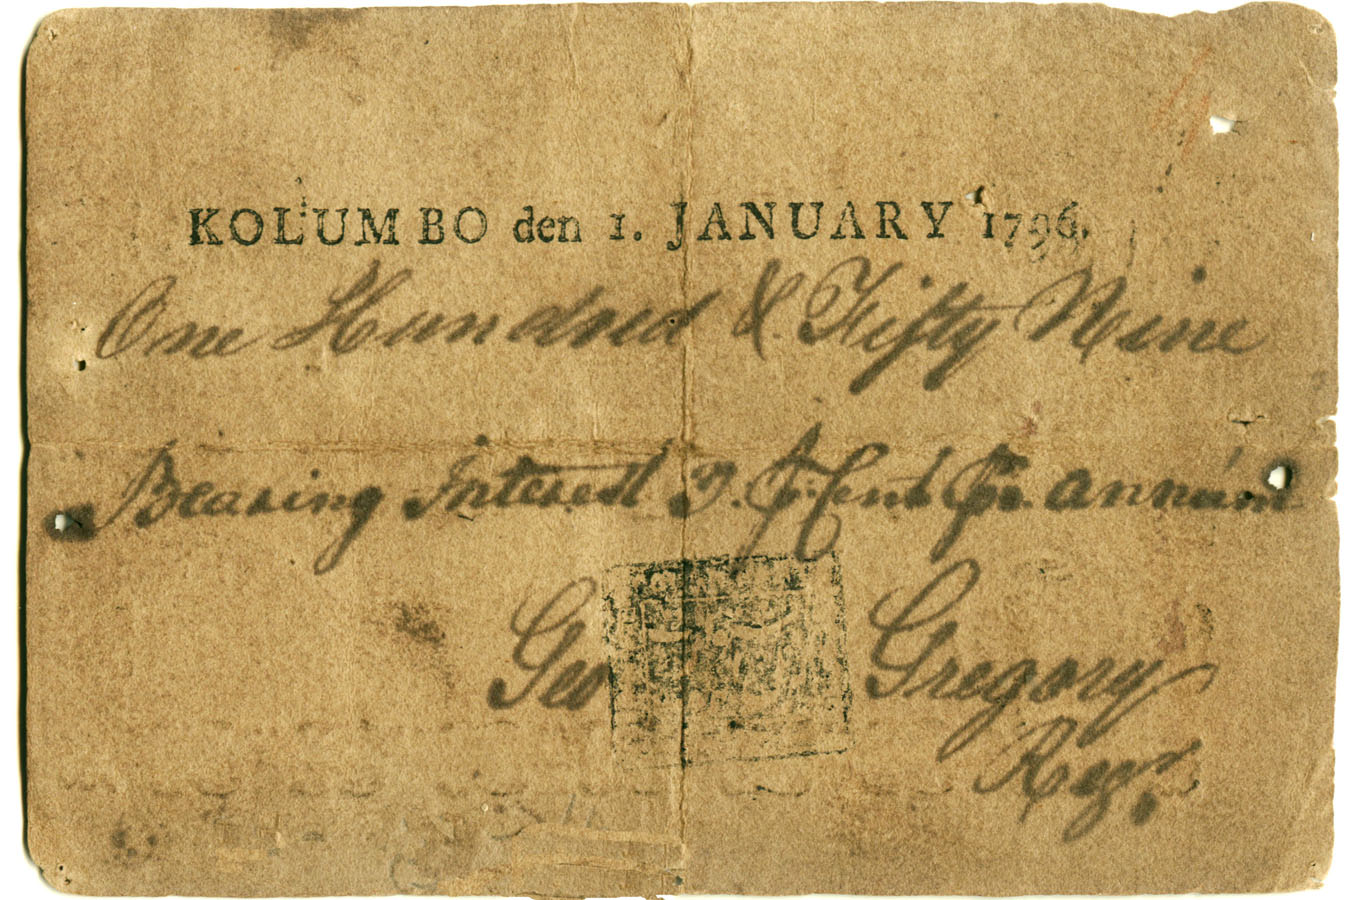 KOLUMBO den 1. JANUARY 1796.
One Hundred & Fifty Nine
Bearing Interest 3. Pr. Cent Pr. annum
Geo Gregory
Regr.